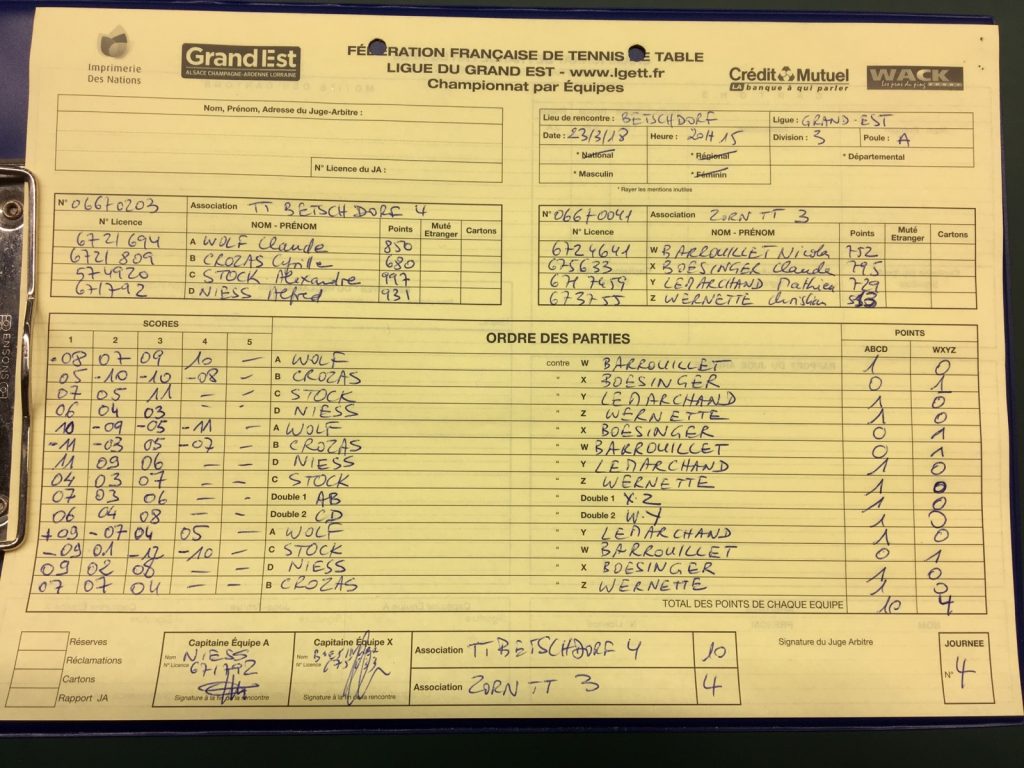 Imprimerie
Des Nations
Grand Est
ALSACE CHAMPAGNE-ARDENNE LORRAINE
FÉDÉRATION FRANÇAISE DE TENNIS DE TABLE
LIGUE DU GRAND EST - www.lgett.fr
Championnat par Équipes
Crédit Mutuel
LA banque à qui parler
WACK
Nom, Prénom, Adresse du Juge-Arbitre :
N° Licence du JA :
Lieu de rencontre : BETSCHDORF Ligue : GRAND-EST
Date : 23/3/18 Heure : 20H15 Division : 3 Poule : A
* National * Régional * Départemental
* Masculin * Féminin
* Rayer les mentions inutiles
N° 06670203 Association TT BETSCHDORF 4
N° Licence NOM - PRÉNOM Points Muté Etranger Cartons
6721694 A WOLF Claude 850
6721809 B CROZAS Cyrille 680
574920 C STOCK Alexandre 997
671792 D NIESS Alfred 931
N° 06670041 Association ZORN TT 3
N° Licence NOM - PRÉNOM Points Muté Etranger Cartons
6724641 W BARROUILLET Nicola 752
675633 X BOESINGER Claude 795
6717459 Y LEMARCHAND Mathieu 729
673755 Z WERNETTE Christian
SCORES ORDRE DES PARTIES POINTS
1 2 3 4 5 ABCD WXYZ
-08 07 09 10 – A WOLF contre W BARROUILLET 1 0
05 -10 -10 -08 – B CROZAS " X BOESINGER 0 1
07 05 11 – – C STOCK " Y LEMARCHAND 1 0
06 04 03 - - D NIESS " Z WERNETTE 1 0
10 -09 -05 -11 – A WOLF " X BOESINGER 0 1
-11 -03 05 -07 – B CROZAS " W BARROUILLET 0 1
11 09 06 – – D NIESS " Y LEMARCHAND 1 0
04 03 07 – – C STOCK " Z WERNETTE 1 0
07 03 06 – - Double 1 AB " Double 1 X-Z 1 0
06 04 08 – – Double 2 CD " Double 2 W-Y 1 0
+09 -07 04 05 – A WOLF " Y LEMARCHAND 1 0
-09 01 -12 -10 – C STOCK " W BARROUILLET 0 1
09 02 08 – – D NIESS " X BOESINGER 1 0
07 07 04 – – B CROZAS " Z WERNETTE 1 0
TOTAL DES POINTS DE CHAQUE EQUIPE 10 4
Réserves
Réclamations
Cartons
Rapport JA
Capitaine Équipe A
Nom NIESS
N° Licence 671792
Signature à la fin de la rencontre
Capitaine Équipe X
Nom
N° Licence
Signature à la fin de la rencontre
Association TT BETSCHDORF 4 10
Association ZORN TT 3 4
Signature du Juge Arbitre
JOURNEE
N° 4